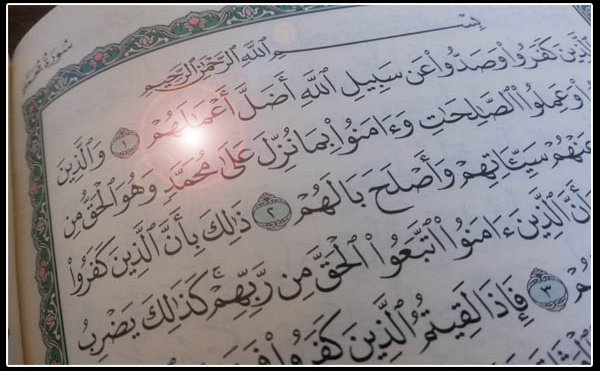 سورة محمد
بسم الله الرحمن الرحيم
الَّذِينَ كَفَرُوا۟ وَصَدُّوا۟ عَن سَبِيلِ ٱللَّهِ أَضَلَّ أَعْمَٰلَهُمْ ١ وَٱلَّذِينَ
وَعَمِلُوا۟ ٱلصَّٰلِحَٰتِ وَءَامَنُوا۟ بِمَا نُزِّلَ عَلَىٰ مُحَمَّدٍ وَهُوَ ٱلْحَقُّ مِن
عَنْهُمْ سَيِّـَٔاتِهِمْ وَأَصْلَحَ بَالَهُمْ ٢ ذَٰلِكَ بِأَنَّ ٱلَّذِينَ كَفَرُوا۟
وَأَنَّ ٱلَّذِينَ ءَامَنُوا۟ ٱتَّبَعُوا۟ ٱلْحَقَّ مِن رَّبِّهِمْ ۚ كَذَٰلِكَ يَضْرِبُ
٣ فَإِذَا لَقِيتُمُ ٱلَّذِينَ كَفَرُوا۟